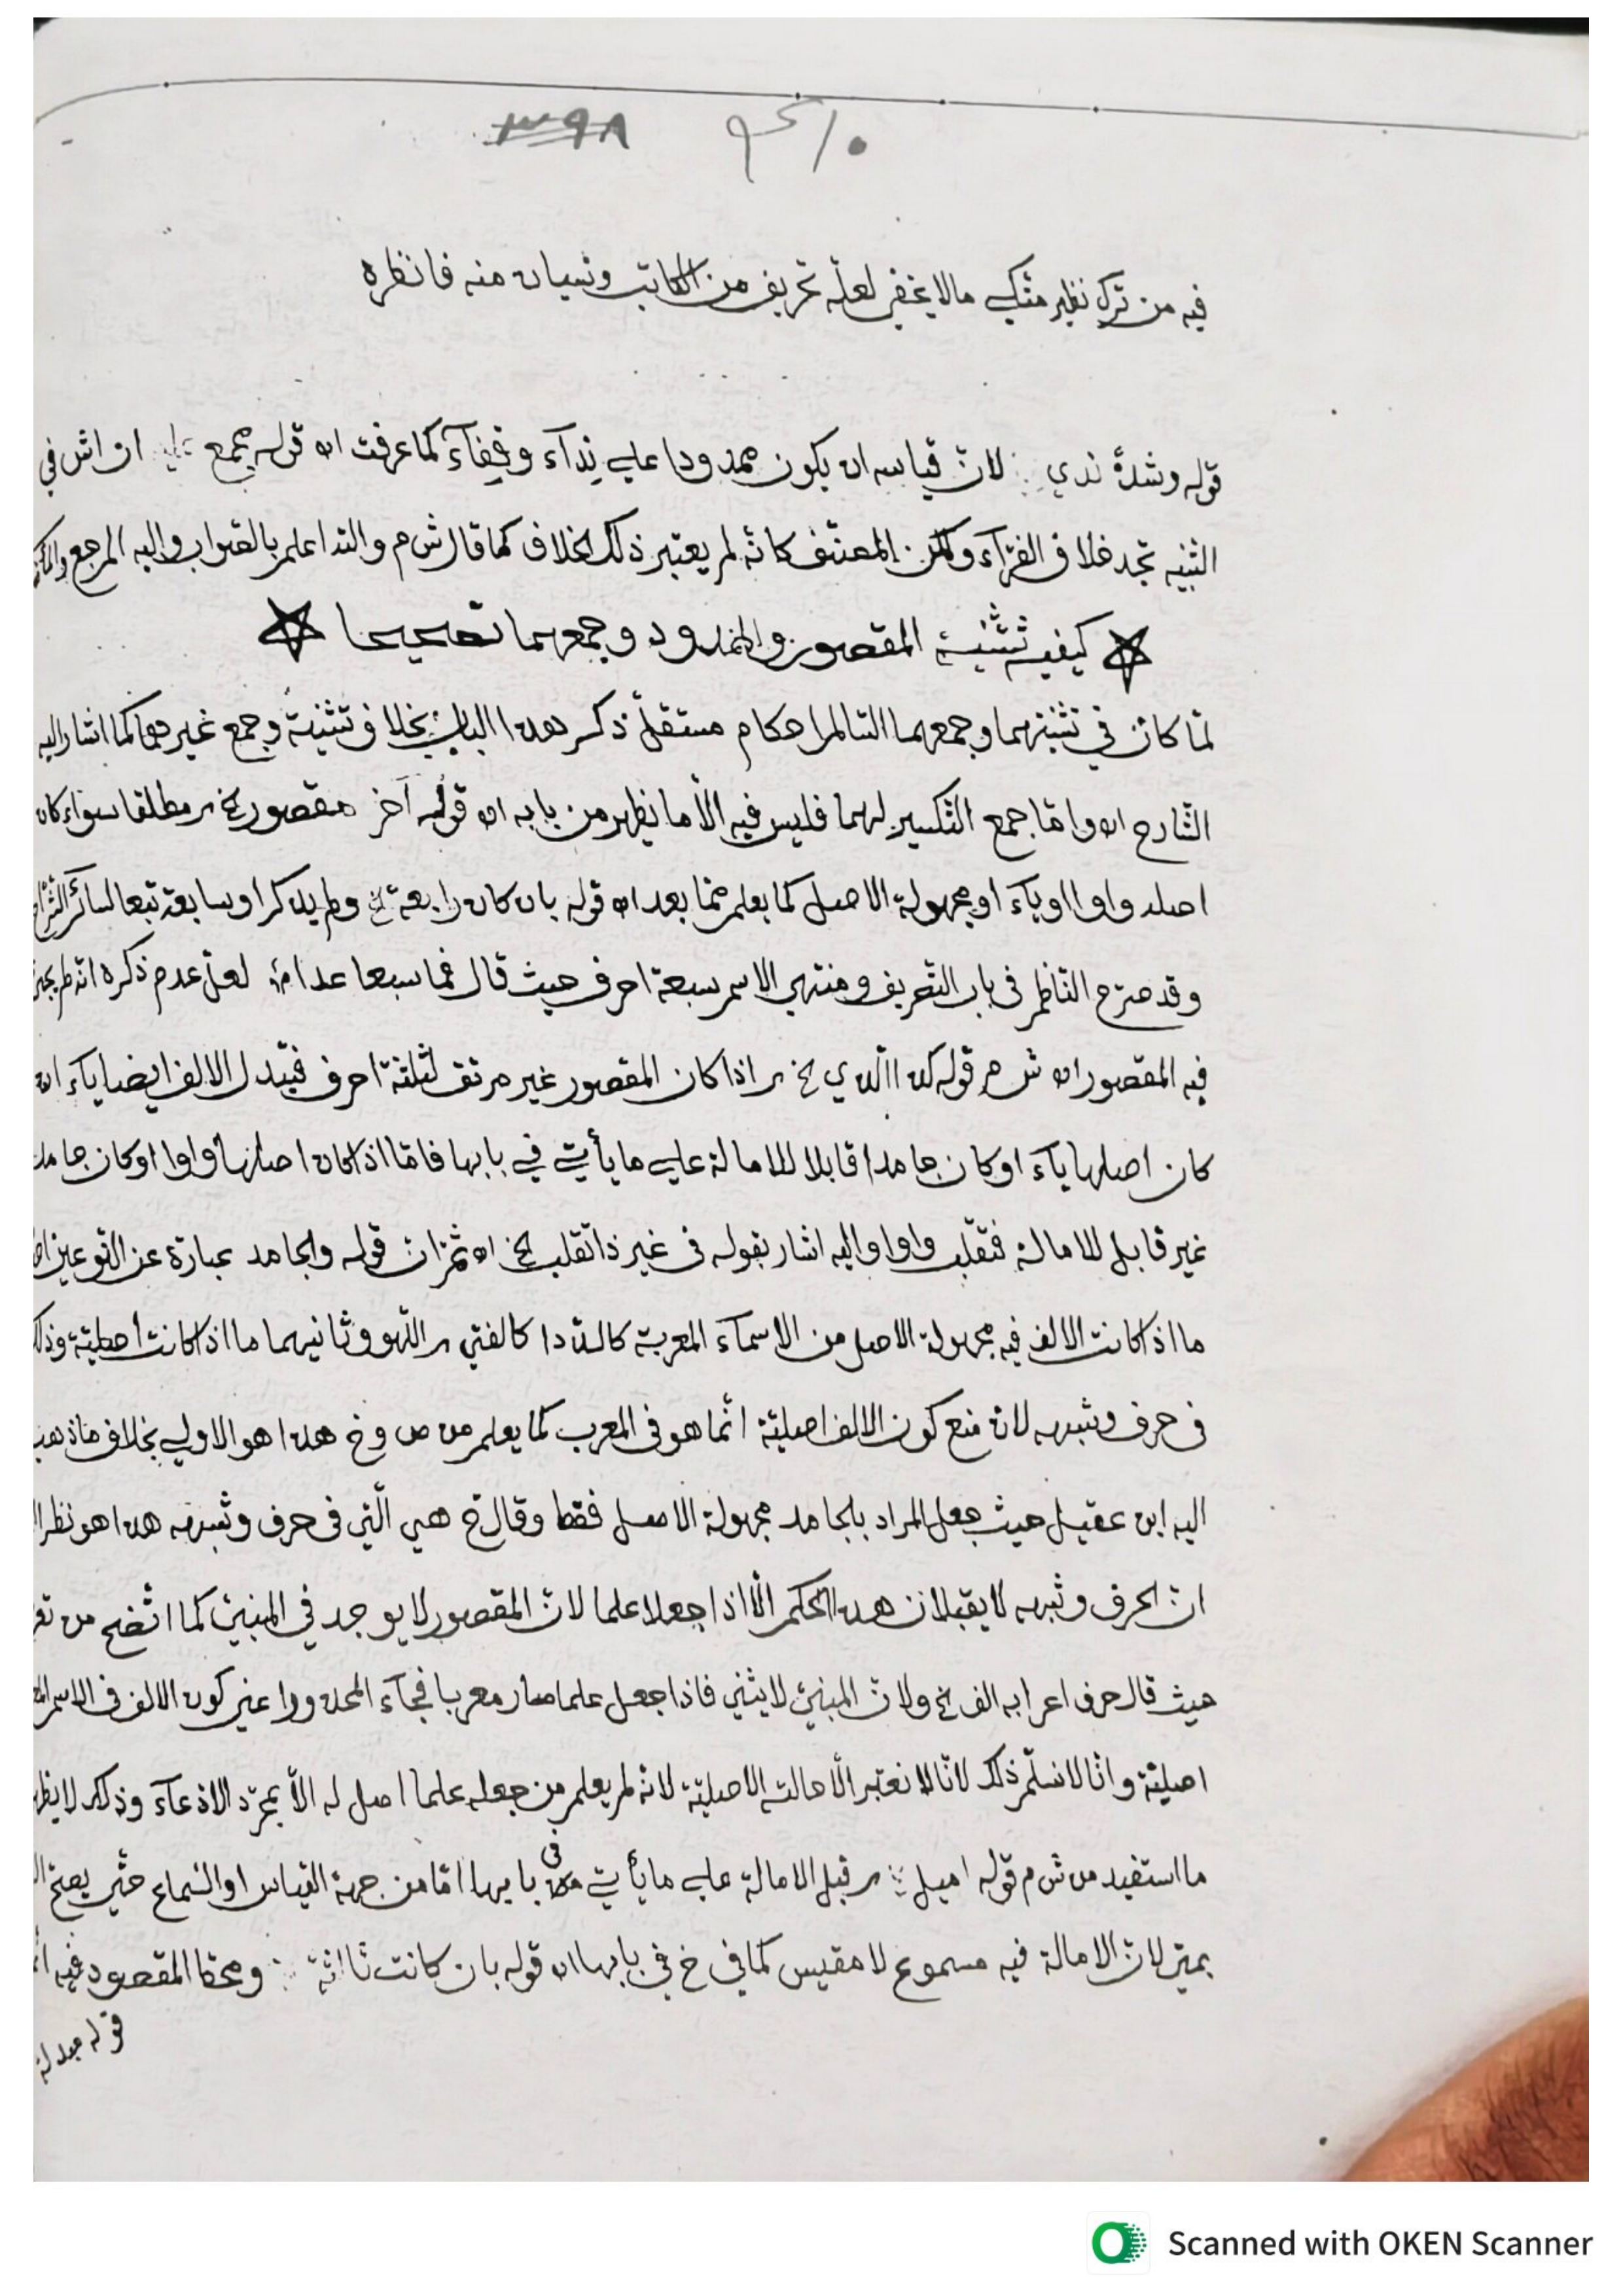 ٣٩٨
فيه من ترك نظير مثكي مالا يخفى لعله تحريف من الكاتب ونسيان منه فانظره
قوله وشذ ندي لان قياسه ان يكون ممدودا علي نداء وقفاء كما عرفت اه قوله جمع ان اش في
التنبيه تجد خلاف الفراء ولكن المصنف كانه لم يعتبر ذلك الخلاف كما قال ش م والله اعلم بالصواب واليه المرجع
كيفية تثنية المقصور والممدود وجمعهما تصحيحا
لما كان في تثنيتهما وجمعهما السالم احكام مستقل ذكر هذا الباب بخلاف تثنية وجمع غيرهما كما اشار اليه
الشارح اه واما جمع التكسير لهما فليس فيه الا ما يظهر من بابه اه قوله آخر مقصور الخ مطلقا سواء كان
اصله واوا او ياء او مجهولة الاصل كما يعلم مما بعد اه قوله بان كان رابعة الخ ولم يذكر او سابعة تبعا لسائر
وقد صرح الناظم في باب التصريف ومنتهي الاسم سبعة احرف حيث قال فما سبعا عدا لعل عدم ذكره انه لم
فيه المقصور اه ش م قوله كذا الذي الخ اذا كان المقصور غير مرتق لثلثة احرف فتبدل الالف ايضا ياء ان
كان اصلها ياء او كان جامدا قابلا للامالة علي ما يأتي في بابها فاما اذا كان اصلها واوا او كان جامد
غير قابل للامالة فتقلب واوا واليه اشار بقوله في غير ذا تقلب الخ اه ثم ان قوله والجامد عبارة عن النوعين
ما اذا كانت الالف فيه مجهولة الاصل من الاسماء المعربة كالددا كالفتي اللهو وثانيهما ما اذا كانت اصلية وذلك
في حرف وشبهه لان منع كون الالف اصلية انما هو في المعرب كما يعلم من ص وخ هذا هو الاولي بخلاف ما ذهب
اليه ابن عقيل حيث جعل المراد بالجامد مجهولة الاصل فقط وقال خ هي التي في حرف وشبهه هذا هو نظرا
ان الحرف وشبهه لا يقبلان هذا الحكم الا اذا جعلا علما لان المقصور لا يوجد في المبني كما اتضح من
حيث قال حرف اعرابه الف الخ ولان المبني لا يثني فاذا جعل علما صار معربا فجاء المحذور اعني كون الالف في الاسم
اصلية وانا لا نسلم ذلك لانا لا نعتبر الا حالته الاصلية لانه لم يعلم من جعله علما اصل له الا بمجرد الادعاء وذلك لا
ما استفيد من ش م قوله اميل قبل الامالة علي ما يأتي في بابها اما من جهة القياس او السماع حتي يصح
لان الامالة فيه مسموع لا مقيس كما في خ في بابها اه قوله بان كانت ثالثة ومحط المقصود فيه
قوله مبدلة
Scanned with OKEN Scanner